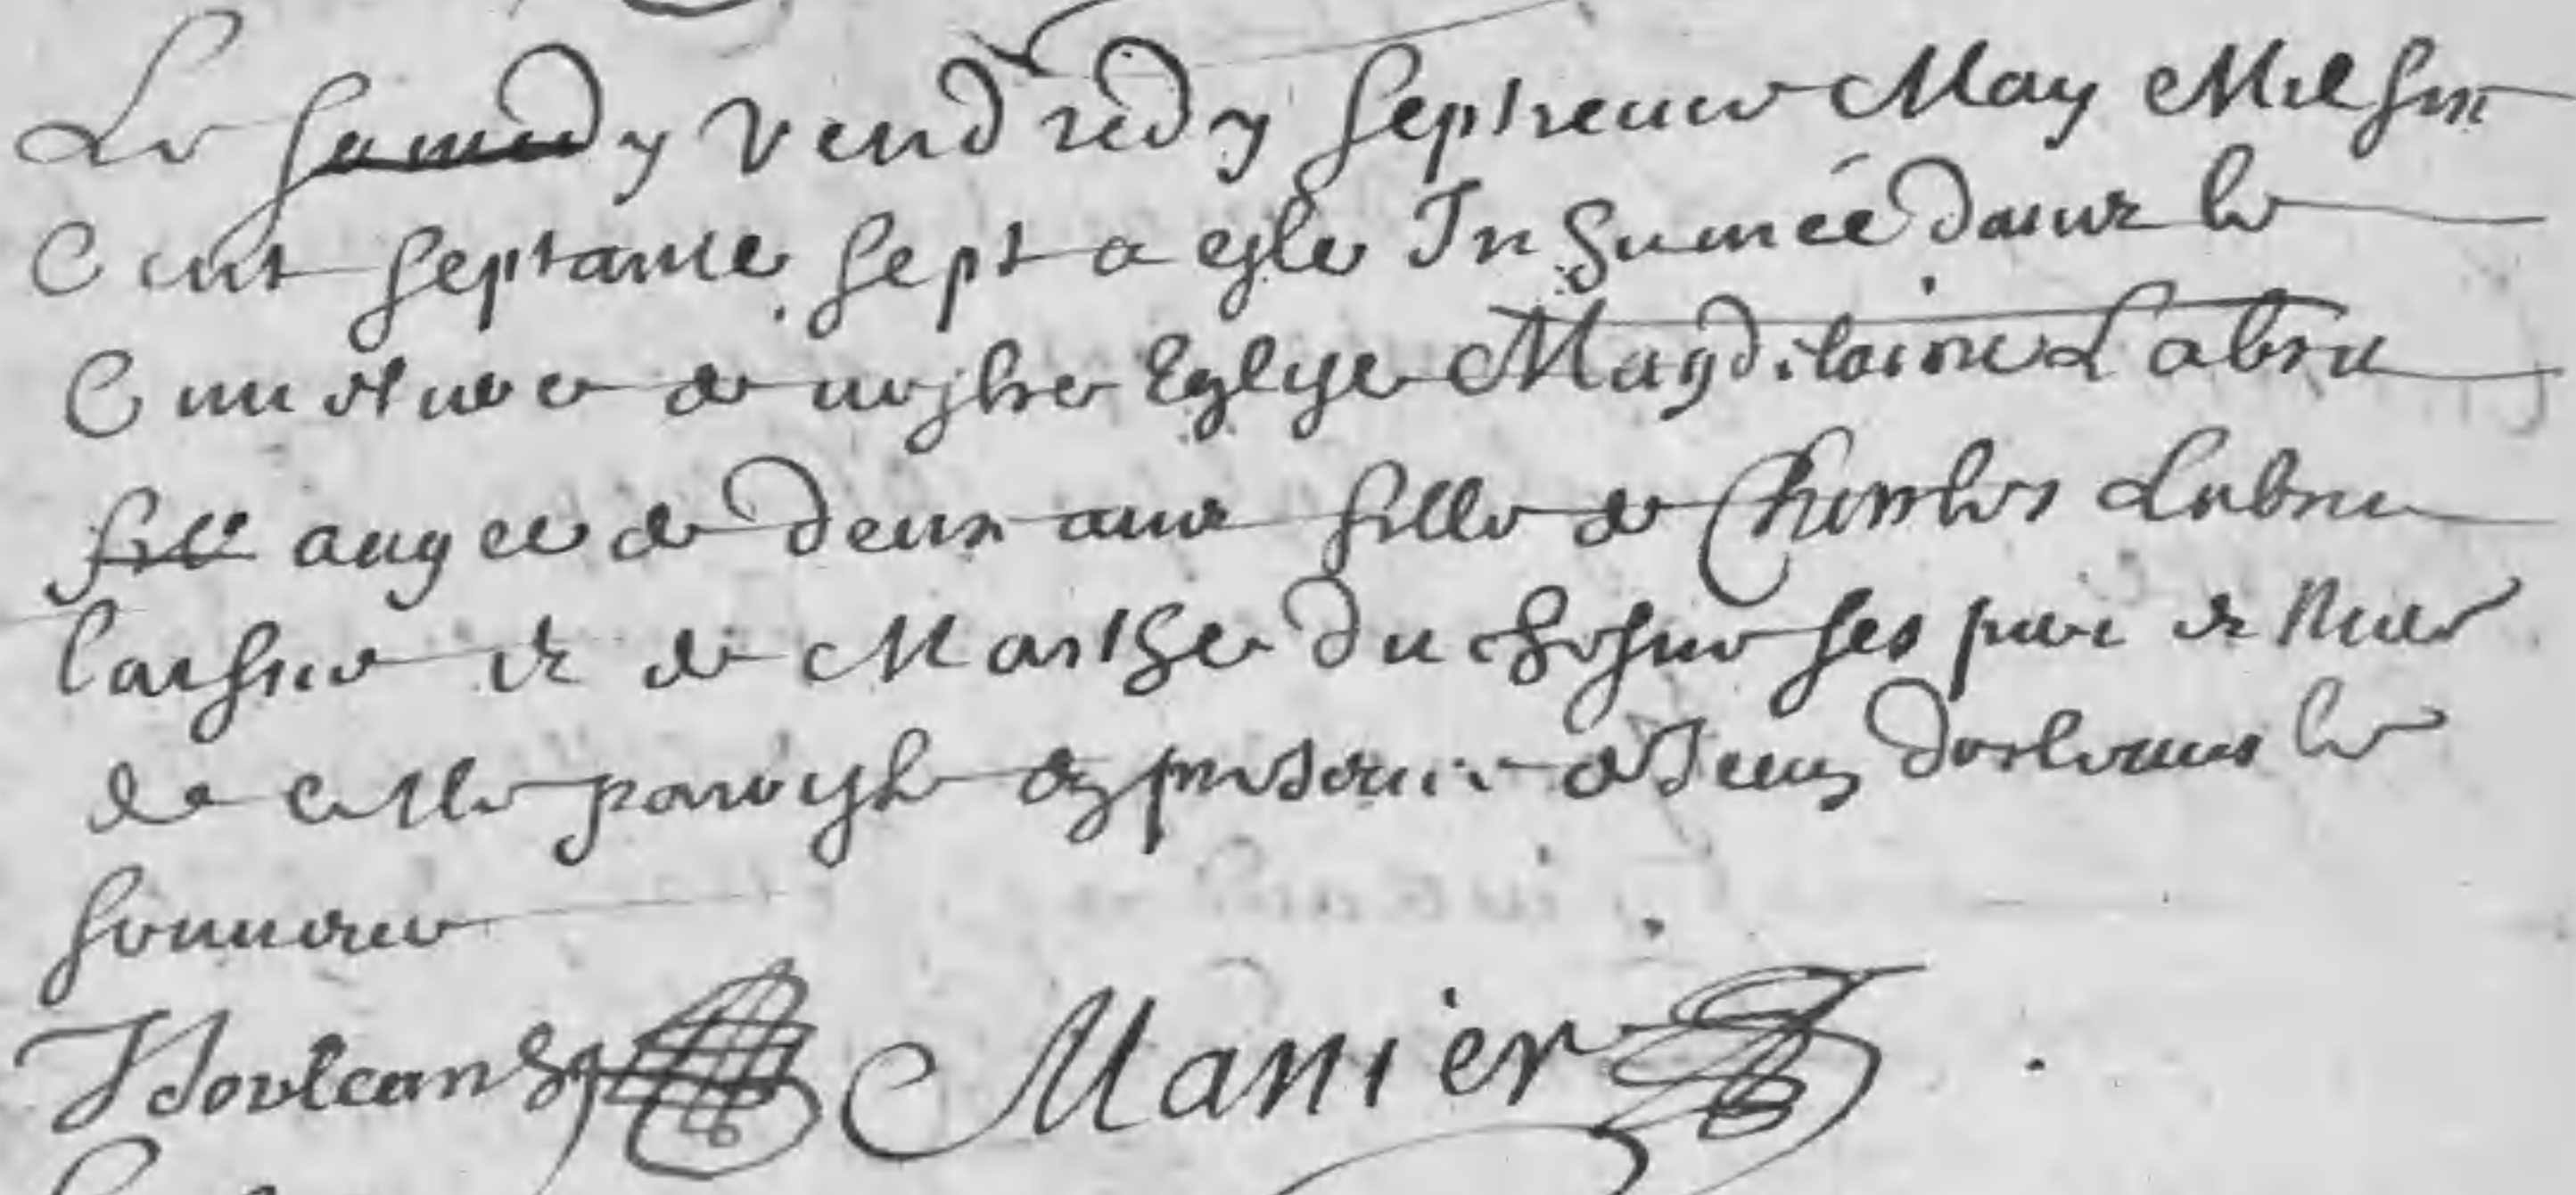 Le samedy vendredy septieme May Mil six
Cent septante sept a este Inhumée dans le
Cimetiere de nostre Eglise Magdelaine Labru
fille augee de deux ans fille de Charles Labru
et de Marthe du ses pere et Mere
de cette paroysse en presence de Jean dorleans le
sonneur
J dorleans Manier